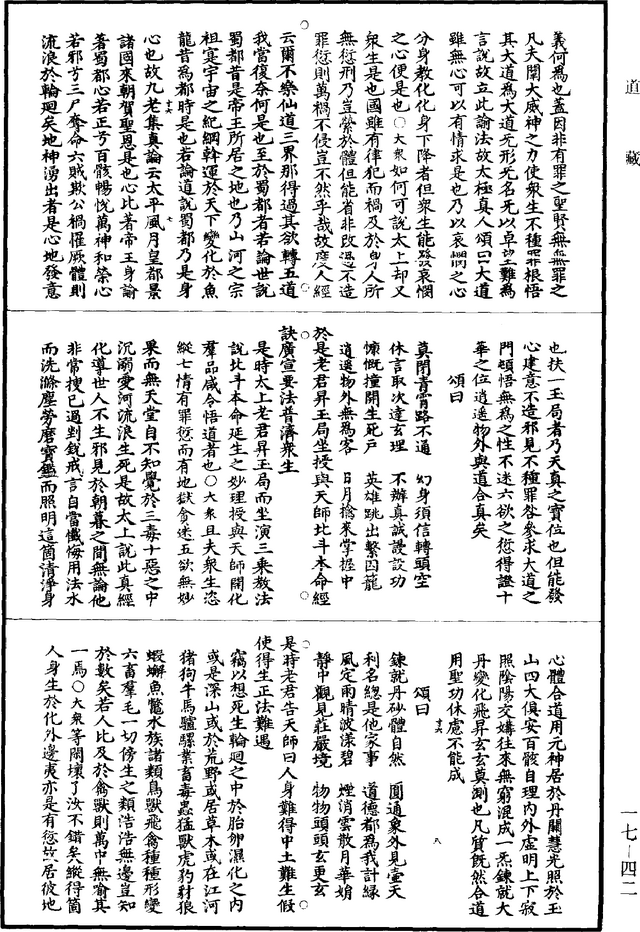 道藏
義何爲也蓋因非有罪之聖賢無無罪之
凡夫闡大威神之力使衆生不種罪根悟
其大道爲大道无形无名死以卓望難爲
言說故立此諭法故太極真人頌曰大道
雖無心可以有情求是也乃以哀憫之心
分身教化化身下降者但衆生能發哀憫
之心便是也〇大衆如何可說太上却又
衆生是也國雖有律犯而禍及於身人所
無愆刑乃豈縈於體但能省非改過不造
罪愆則萬禍不侵豈不然乎哉故度人經
云爾不樂仙道三界那得過其欲轉五道
我當復奈何是也至於蜀都者若論世說
蜀都昔是帝王所居之地也乃山河之宗
祖寔宇宙之紀綱斡運於天下變化於魚
龍昔爲都時是也若論道說蜀都乃是身
心也故九老集真論云太平風月皇都景
諸國來朝賀聖恩是也心比著帝王身諭
著蜀都心若正亏百骸暢悅萬神和榮心
若邪亏三尸奪命六賊欺公禍催厥體則
流浪於輪廻矣地神湧出者是心地發意
也扶一玉局者乃天真之寶位也但能發
心建意不造邪見不種罪咎參求大道之
門頓悟無爲之性不迷六欲之愆得證十
華之位逍遥物外與道合真矣
頌曰
真閉青霄路不通　幻身須信轉頭空
休言取次達玄理　不辦真誠謾設功
慷慨撞開生死戶　英雄跳出繫囚籠
逍遥物外無爲客　日月擒來掌握中
於是老君昇玉局坐授與天師北斗本命經
訣廣宣要法普濟衆生
是時太上老君昇玉局而坐演三乘教法
說北斗本命延生之妙理授與天師開化
羣品咸令悟道者也〇大衆且夫衆生恣
縱七情有罪愆而有地獄貪迷五欲無妙
果而無天堂自不知覺於三毒十惡之中
沉溺愛河流浪生死是故太上說此真經
化導世人不生邪見於朝暮之間無論他
非常搜已過剉銳戒言自當懺悔用法水
而洗滌塵勞磨寶鑑而照明這箇清淨身
心體合道用元神居於丹闕慧光照於玉
山四大俱安百骸自理内外虛明上下寂
照陰陽交媾往來無窮混成一炁鍊就大
丹變化飛昇玄玄莫測也凡質旣然合道
用聖功休慮不能成
頌曰
鍊就丹砂體自然　圓通象外見壺天
利名總是他家事　道德都爲我計緣
風定雨晴波漾碧　煙消雲散月華娟
靜中觀見莊嚴境　物物頭頭玄更玄
是時老君告天師曰人身難得中土難生假
使得生正法難遇
竊以想死生輪迴之中於胎卵濕化之内
或是深山或於荒野或居草木或在江河
猪狗牛馬驢騾業畜毒蟲猛獸虎豹豺狼
蝦蠏魚鱉水族諸類鳥獸飛禽種種形變
六畜羣毛一切傍生之類浩浩無邊豈知
於數矣若人比及於禽獸則萬中無喻其
一焉〇大衆等閑壞了汝不錯矣縱得箇
人身生於化外邊夷亦是有愆故居彼地
一七－四二